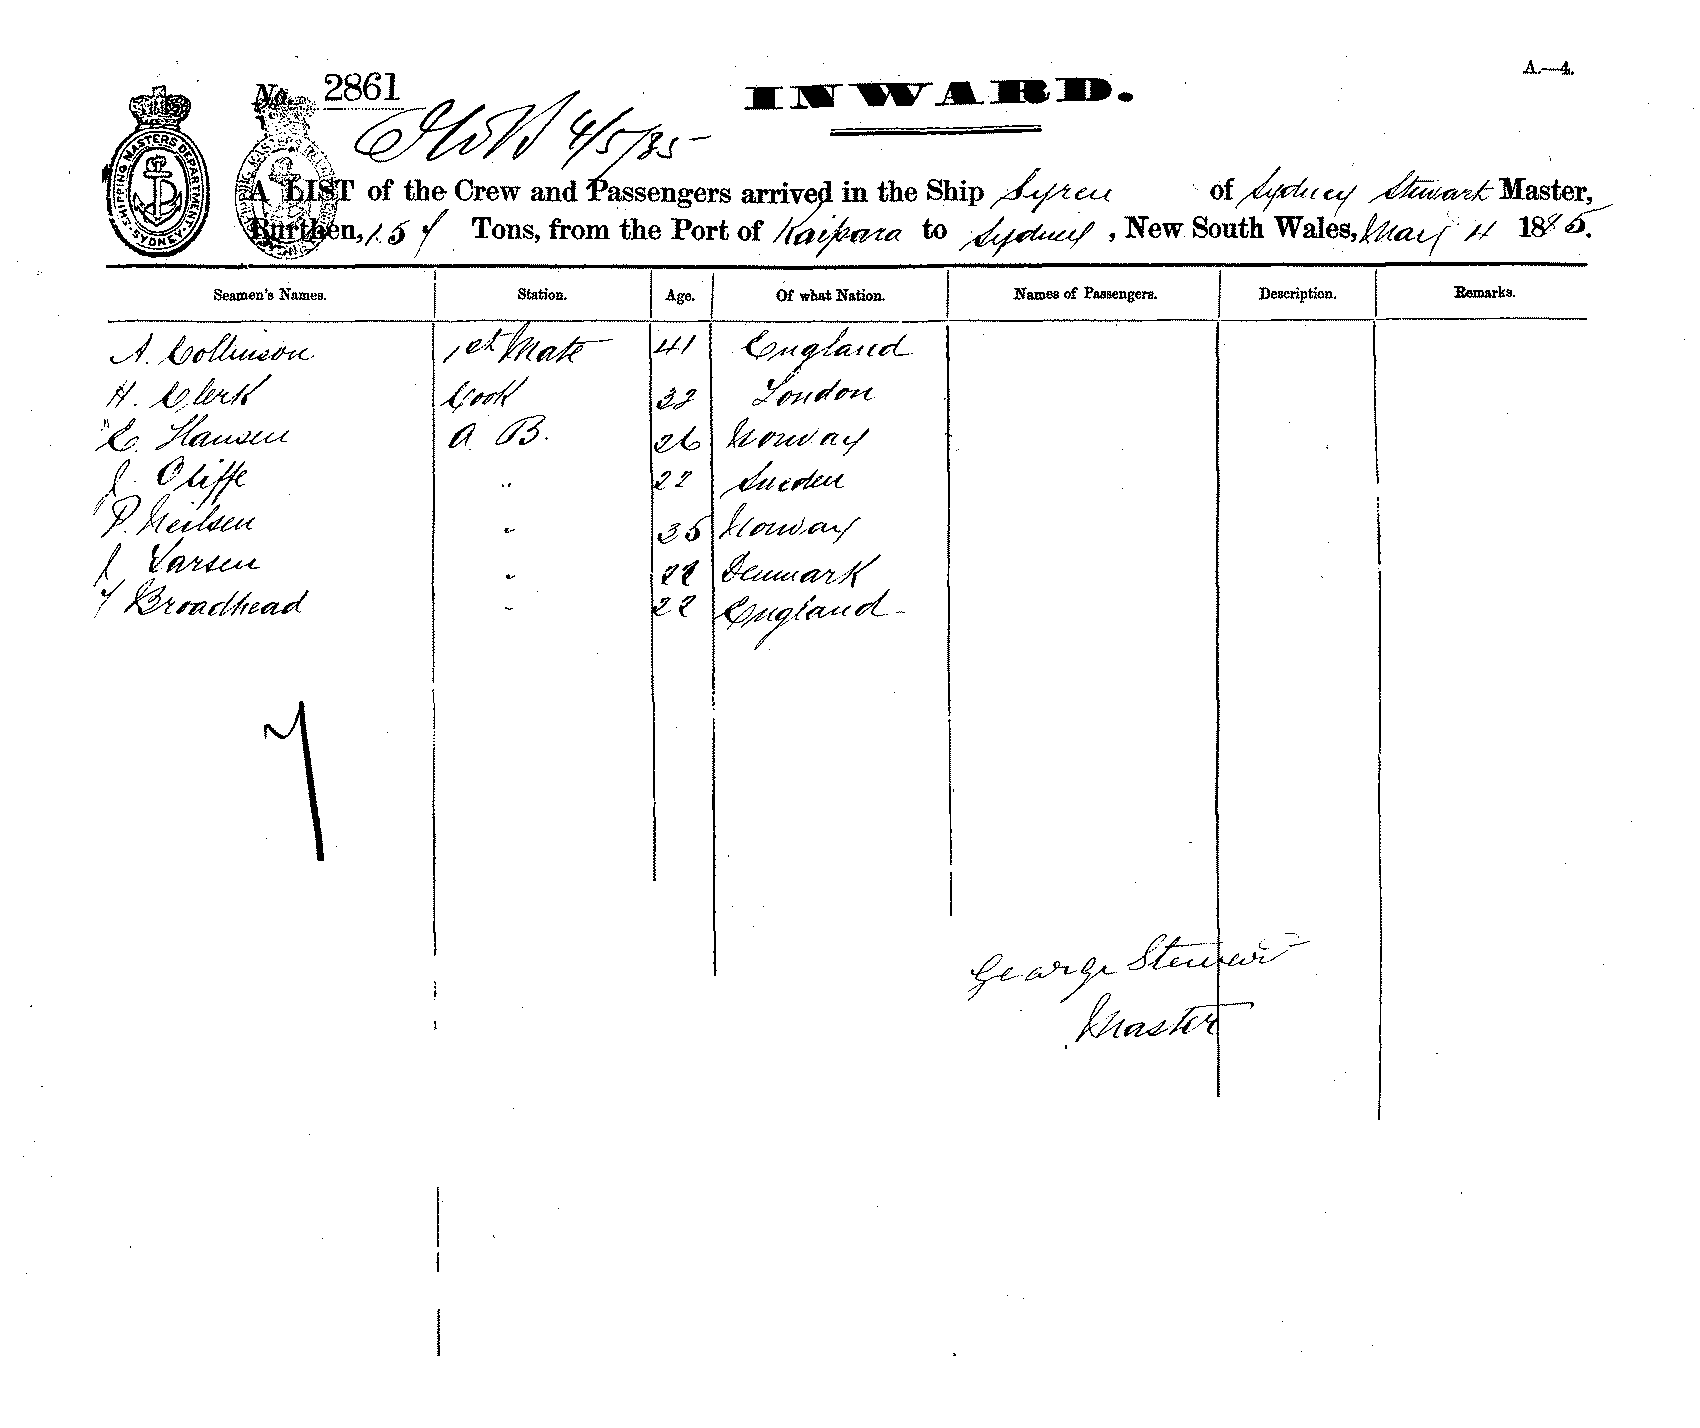 A.—4.
No. 2861
INWARD.
4/5/85
SHIPPING MASTERS DEPARTMENT SYDNEY
A LIST of the Crew and Passengers arrived in the Ship Syren of Sydney Stewart Master,
Burthen, 157 Tons, from the Port of Kaipara to Sydney, New South Wales, May 4 1885.
Seamen's Names. Station. Age. Of what Nation. Names of Passengers. Description. Remarks.
A. Collinson 1st Mate 41 England
H. Clerk Cook London
C. Hansen A. B. 26 Norway
J. Oliffe " 22 Sweden
P. Neilsen " 35 Norway
J Larsen " 22 Denmark
Broadhead " 22 England
7
George Stewart
Master